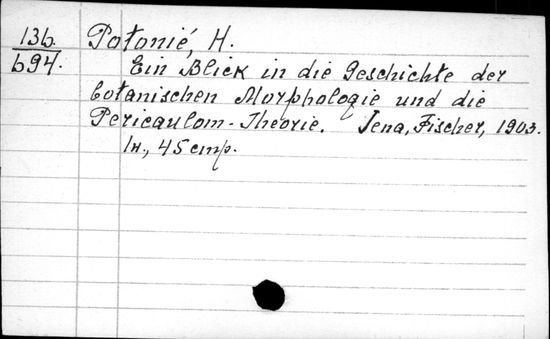 13b. Potonié, H.
b94. Ein Blick in die Geschichte der
botanischen Morphologie und die
Pericaulom-Theorie. Jena, Fischer, 1903.
1н., 45 стр.